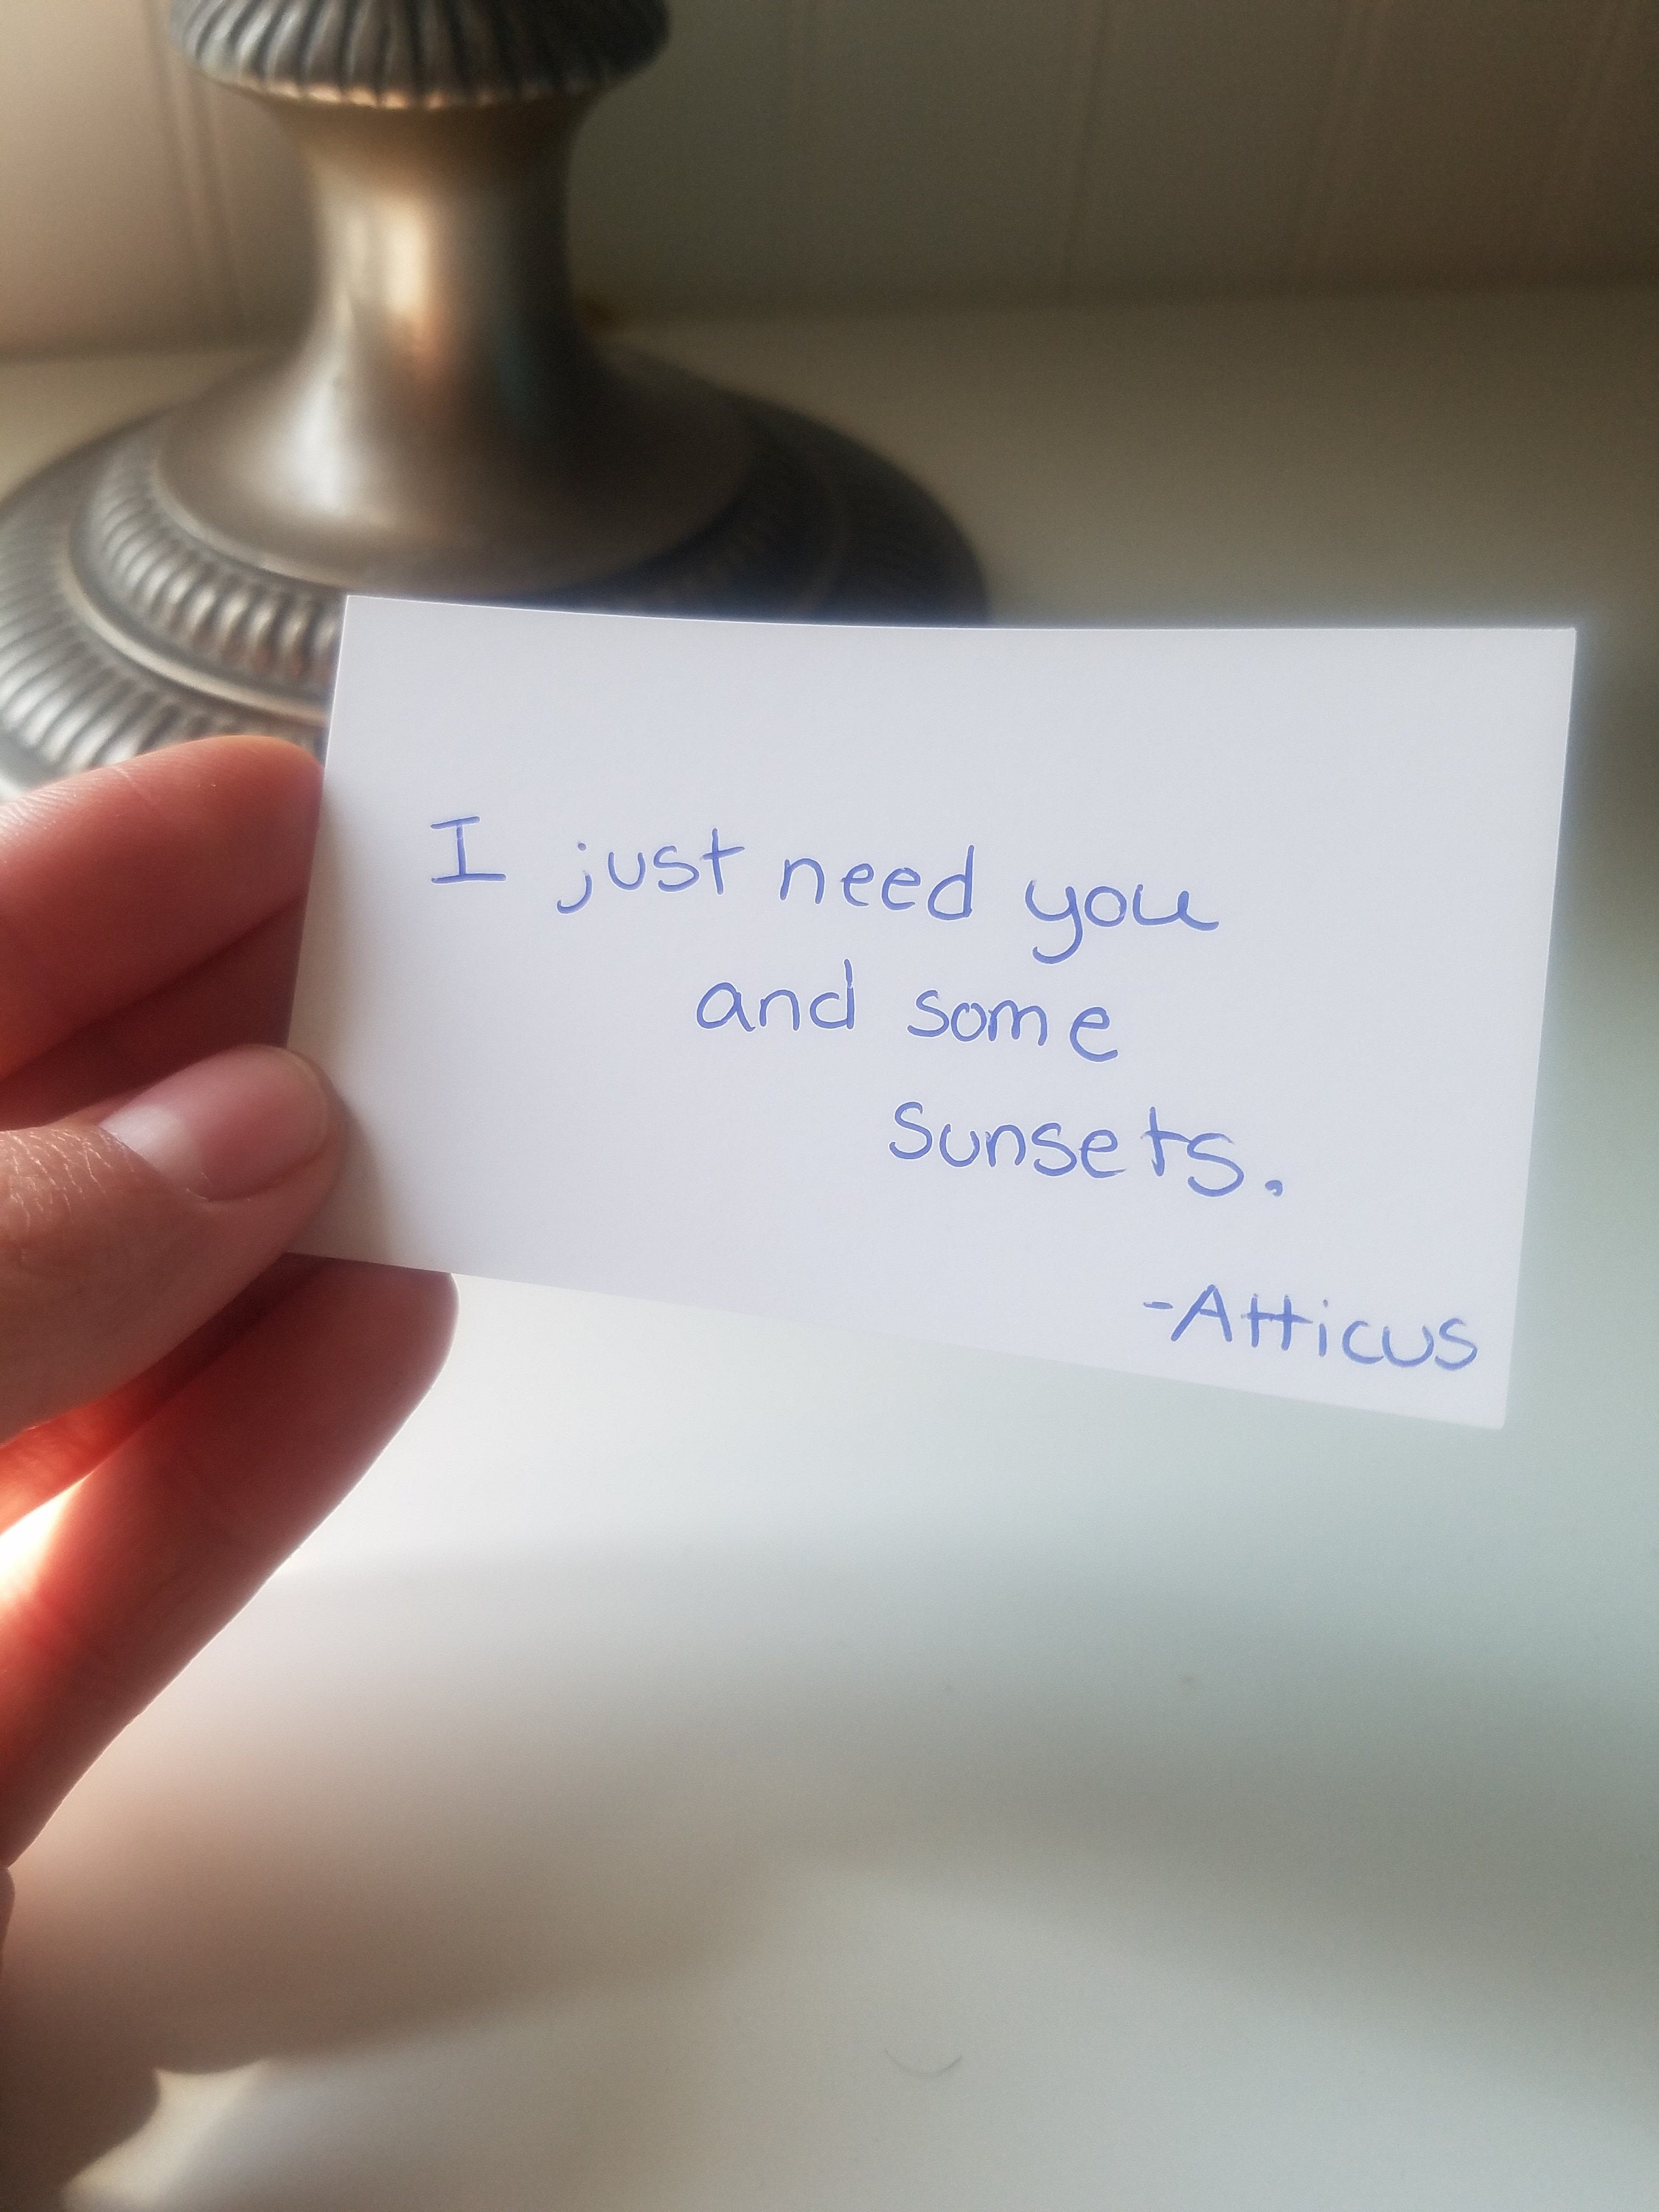 I just need you
and some
Sunsets.
-Atticus